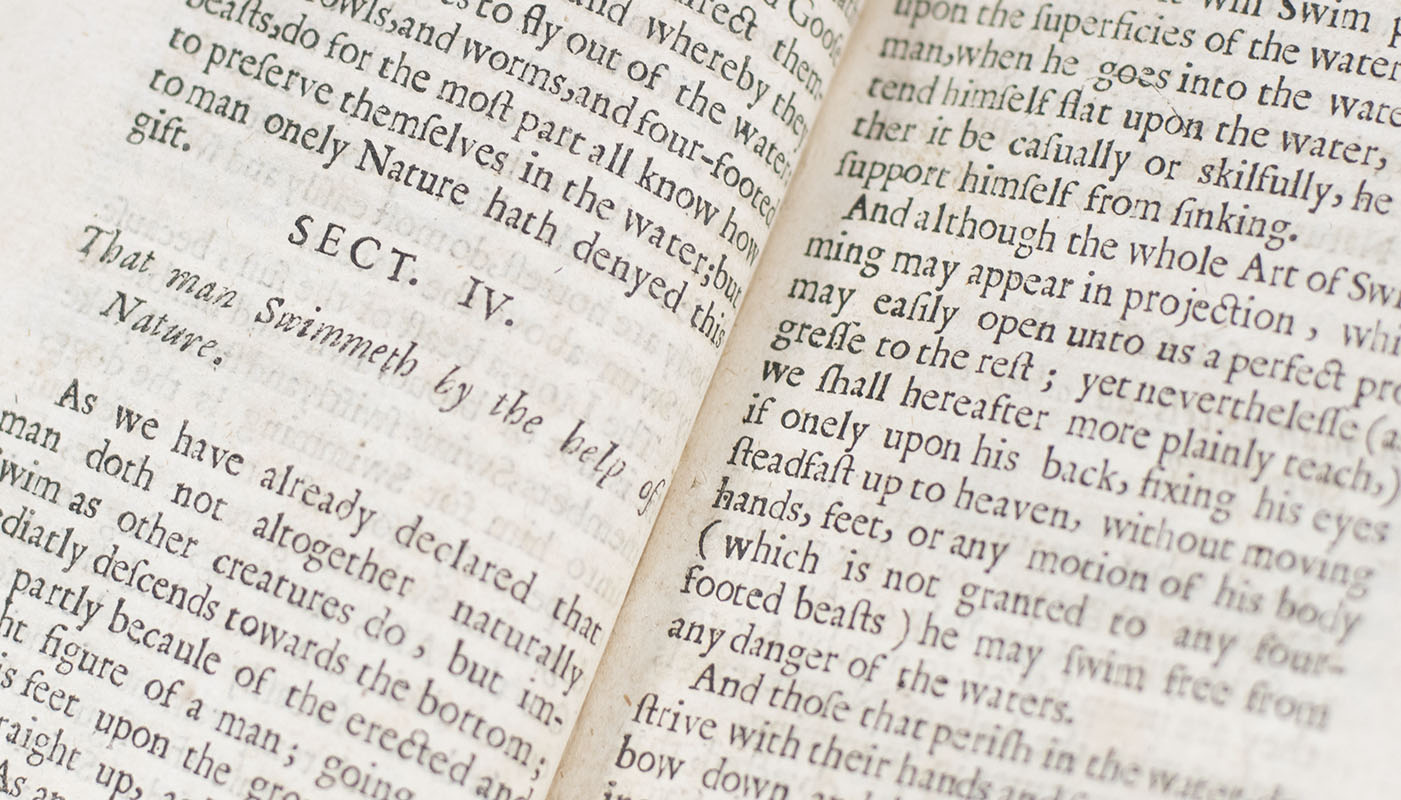 Goose
direct them-
to fly out of and whereby they
fowls, and worms, and four-footed the water:
beaſts, do for the moſt part all know how
to preſerve themſelves in the water; but
to man onely Nature hath denyed this
gift.
SECT. IV.
That man Swimmeth by the help of
Nature.
As we have already declared that
man doth not altogether naturally
Swim as other creatures do, but im-
diatly deſcends towards the bottom;
partly becauſe of the erected and
figure of a man; going
feet upon the
up,
As
will Swim
upon the ſuperficies of the water
man, when he goes into the
tend himſelf flat upon the water,
ther it be caſually or skilfully, he
ſupport himſelf from ſinking.
And although the whole Art of
ming may appear in projection,
may eaſily open unto us a perfect
greſſe to the reſt; yet nevertheleſſe (
we ſhall hereafter more plainly teach,)
if onely upon his back, fixing his eyes
ſteadfaſt up to heaven, without moving
hands, feet, or any motion of his body
(which is not granted to any four-
footed beaſts) he may ſwim free from
any danger of the waters.
And thoſe that periſh in the water,
ſtrive with their hands and
bow down